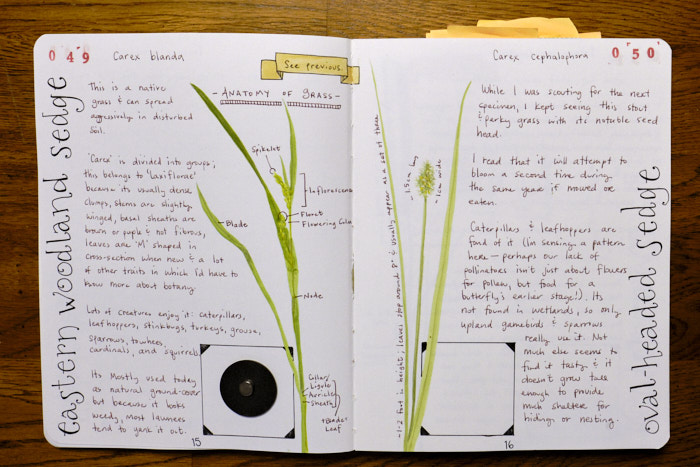 049
Carex blanda
Eastern Woodland Sedge
This is a native
grass & can spread
aggressively in disturbed
soil.
'Carex' is divided into groups;
this belongs to 'Laxiflorae'
because its usually dense
clumps, stems are slightly
winged, basal sheaths are
brown or puple & not fibrous,
leaves are 'M' shaped in
cross-section when new & a lot
of other traits in which I'd have to
know more about botany.
Lots of creatures enjoy it: caterpillars,
leafhoppers, stinkbugs, turkeys, grouse,
sparrows, towhees,
cardinals, and squirrels
Its mostly used today
as natural ground-cover
but because it looks
weedy, most lawnees
tend to yank it out.
15
See previous.
- Anatomy of Grass -
Spikelet
Inflorescence
Floret
Flowering Culm
Blade
Node
Collar
Ligule
Auricle
Sheath
+Blade=
Leaf
Carex Cephalophora
050
Oval-headed Sedge
~1-2 foot in height; leaves stop around 8" & usually appear as a set of three
~1.5cm long
~1cm wide
While I was scouting for the next
specimen, I kept seeing this stout
& perky grass with its notable seed
head.
I read that it will attempt to
bloom a second time during
the same year if mowed or
eaten.
Caterpillars & leafhoppers are
fond of it (I'm sensing a pattern
here - perhaps our lack of
pollinators isn't just about flowers
for pollen, but food for a
butterfly's earlier stage!). Its
not found in wetlands, so only
upland gamebirds & sparrows
really use it. Not
much else seems to
find it tasty & it
doesn't grow tall
enough to provide
much shelter for
hiding or nesting.
16